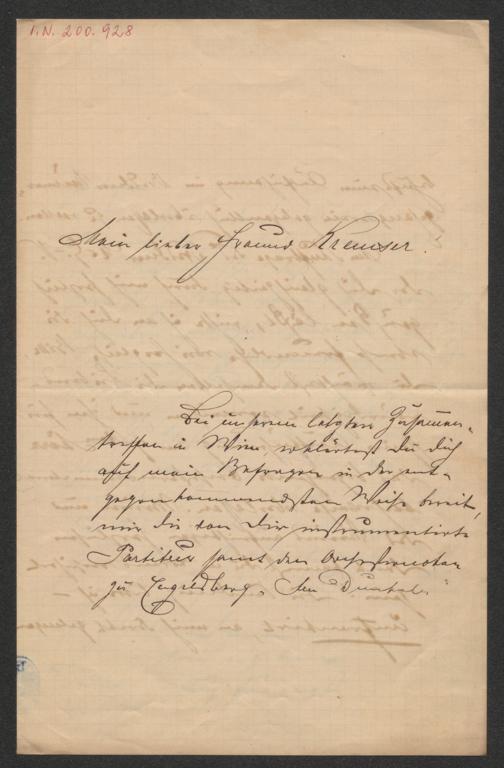 I.N. 200.928
Mein lieber Freund Kremser.
Bei unserem letzten Zusammen-
treffen in Wien erklärtest du dich
auf mein Befragen in der ent-
gegenkommendsten Weise bereit,
mir die von Dir instrumentirte
Partitur samt den Orchesternoten
zu Engelsberg's